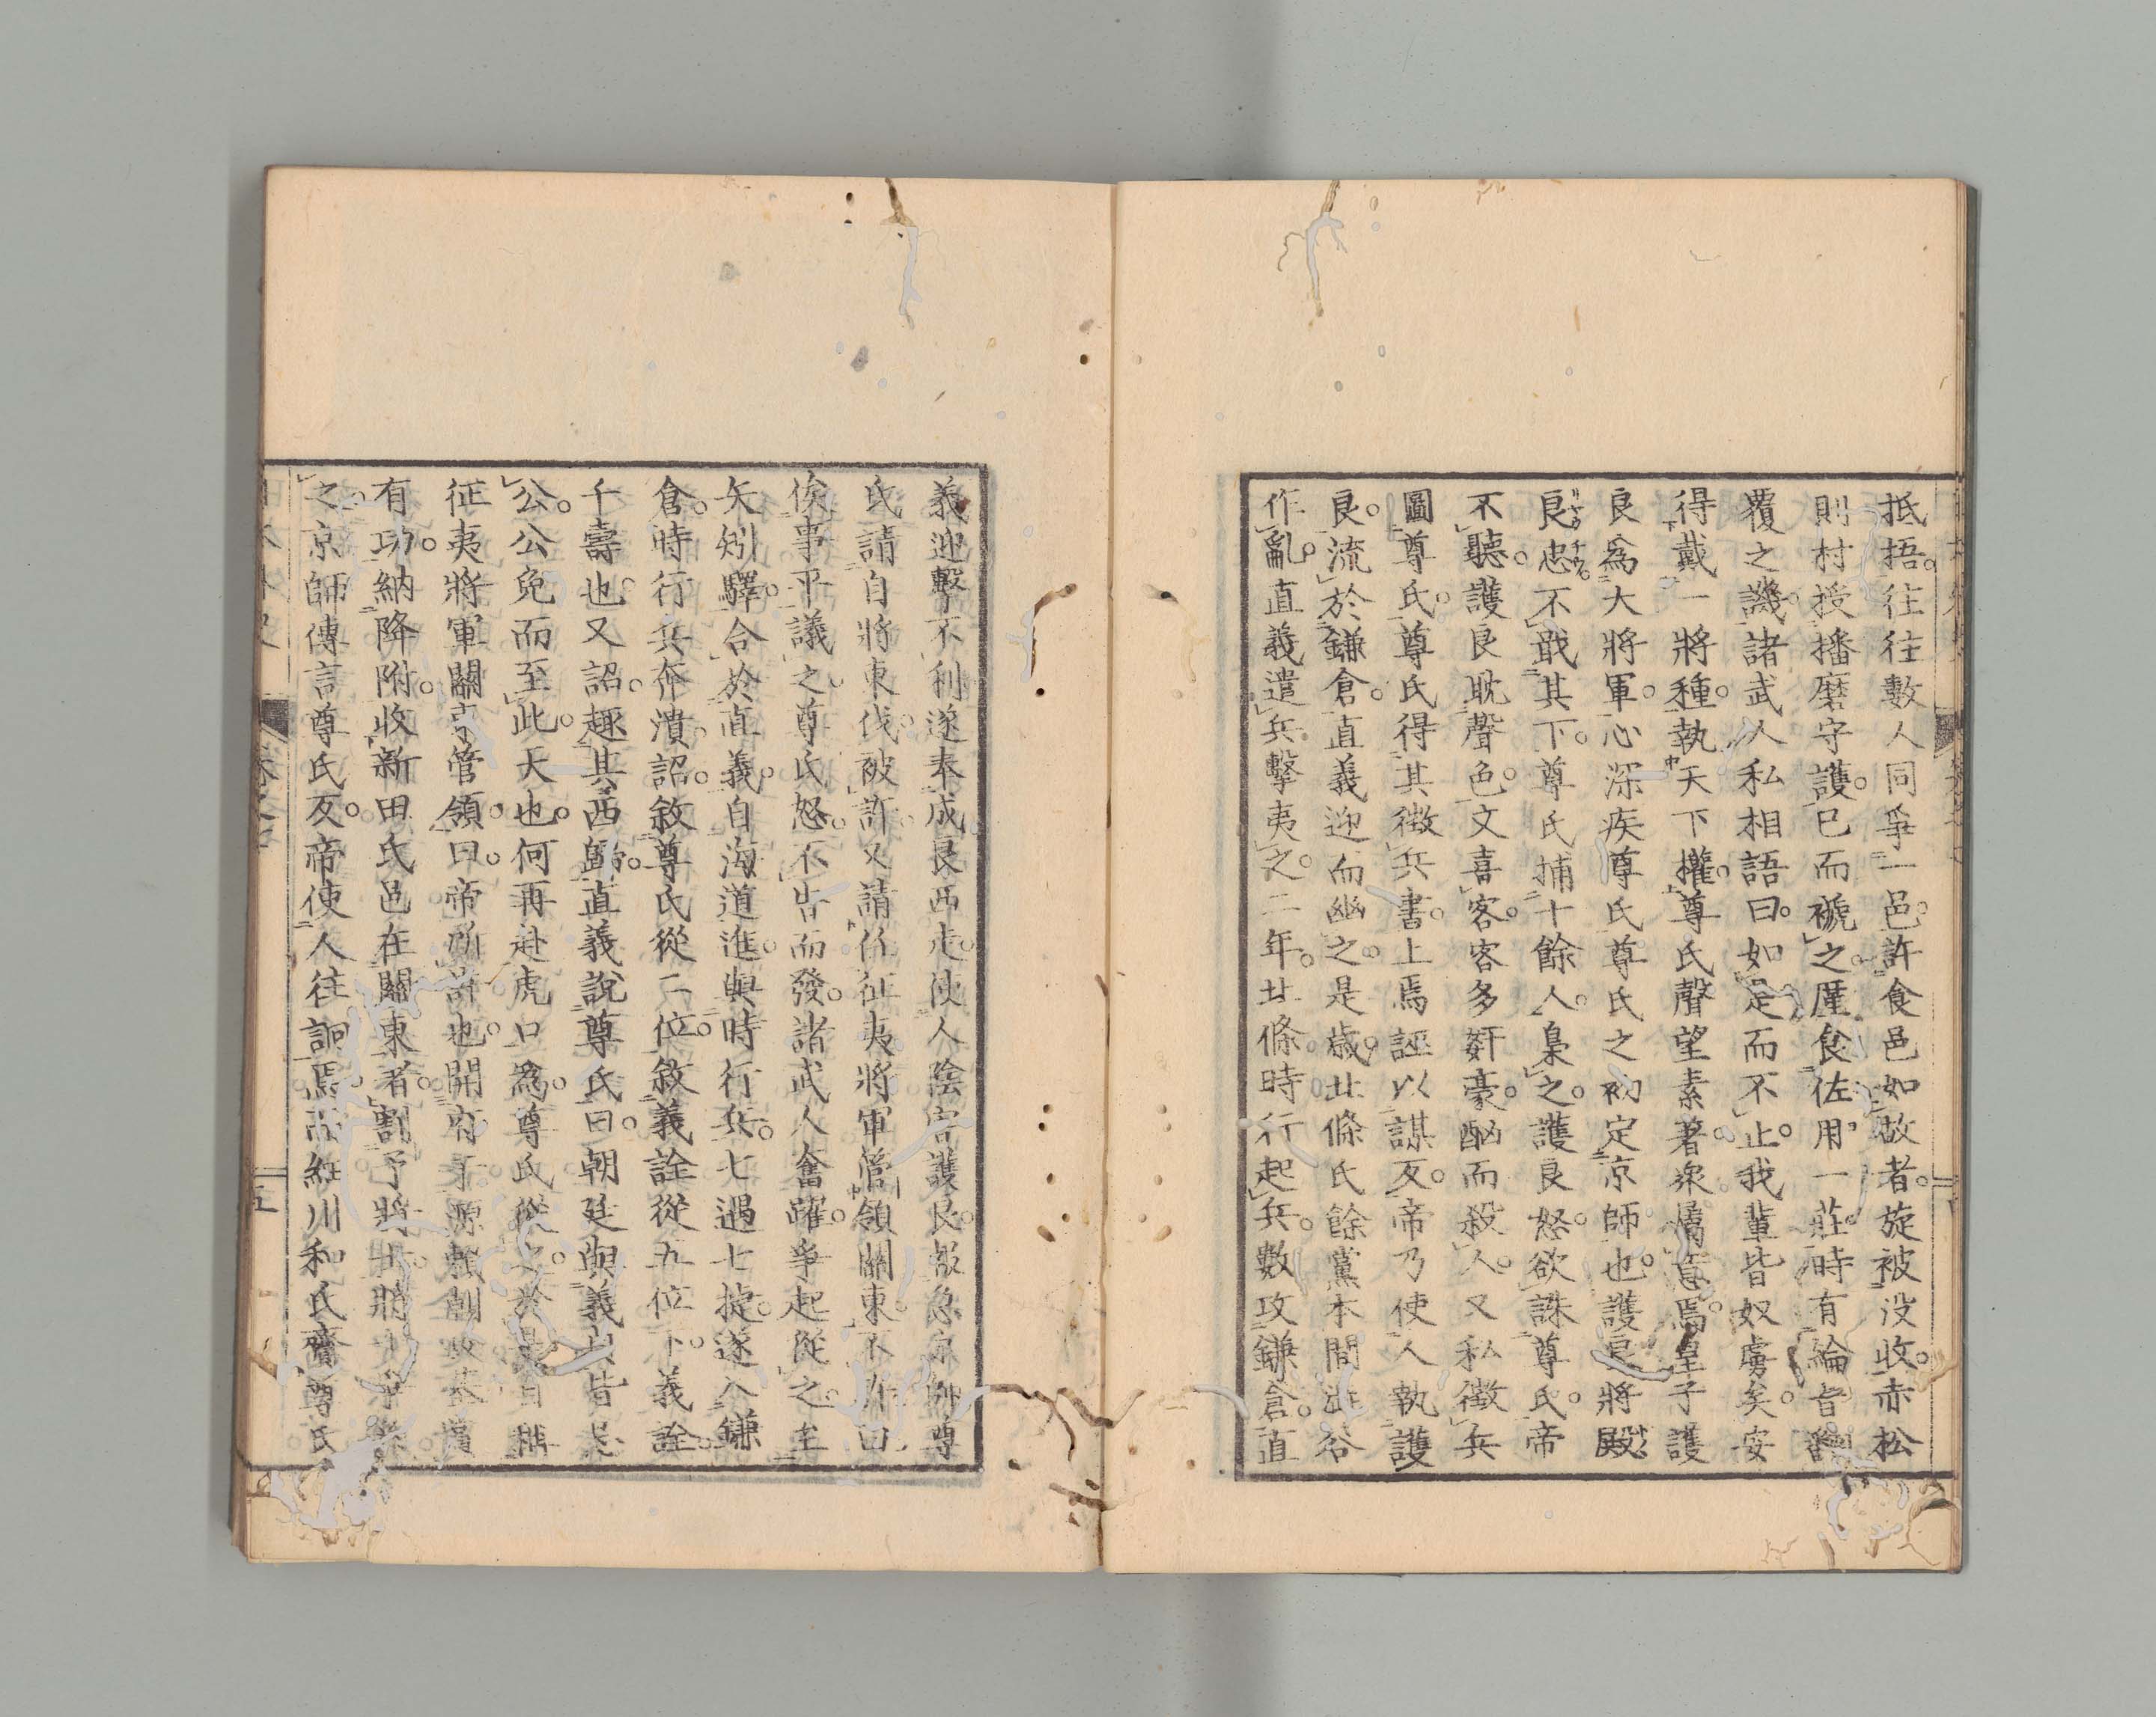 抵捂。往往數人同爭一邑。許食邑如故者。旋被没收。赤松
則村授播磨守護。已而褫之。厪食佐用一莊。時有綸旨翻
覆之譏。諸武人私相語曰。如是而不止。我輩皆奴虜矣。安
得戴一將種。執天下權。尊氏聲望素著。衆屬意焉。皇子護
良爲大將軍。心深疾尊氏。尊氏之初定京師也。護良將殿
良忠不戢其下。尊氏捕十餘人。梟之。護良怒。欲誅尊氏。帝
不聽。護良耽聲色。文喜客。客多奸豪。酗而殺人。又私徵兵
圖尊氏。尊氏得其徴兵書。上焉。誣以謀反。帝乃使人執護
良。流於鎌倉。直義迎而幽之。是歳。北條氏餘黨本間澁谷
作亂。直義遣兵擊夷之。二年。北條時行起兵。數攻鎌倉。直
義迎擊不利。遂奉成良西走。使人陰害護良。報急京師。尊
氏請自將東伐。被許。又請任征夷將軍管領關東。不許。曰
俟事平議之。尊氏怒。不告而發。諸武人奮躍。爭起從之。至
矢矧驛。合於直義。自海道進。與時行兵。七遇七捷。遂入鎌
倉。時行兵奔潰。詔敘尊氏從二位。敘義詮從五位下。義詮
千壽也。又詔。趣其西歸。直義說尊氏曰。朝廷與義貞皆忌
公。公免而至此。天也。何再赴虎口爲。尊氏從之。於是自稱
征夷將軍關東管領。曰。帝所許也。開府于源賴朝故
有功。納降附。收新田氏邑在關東者。割予將士。
之京師傳言尊氏反。帝使人往詗焉。而細川和氏齎尊氏
日本外史 卷之 五